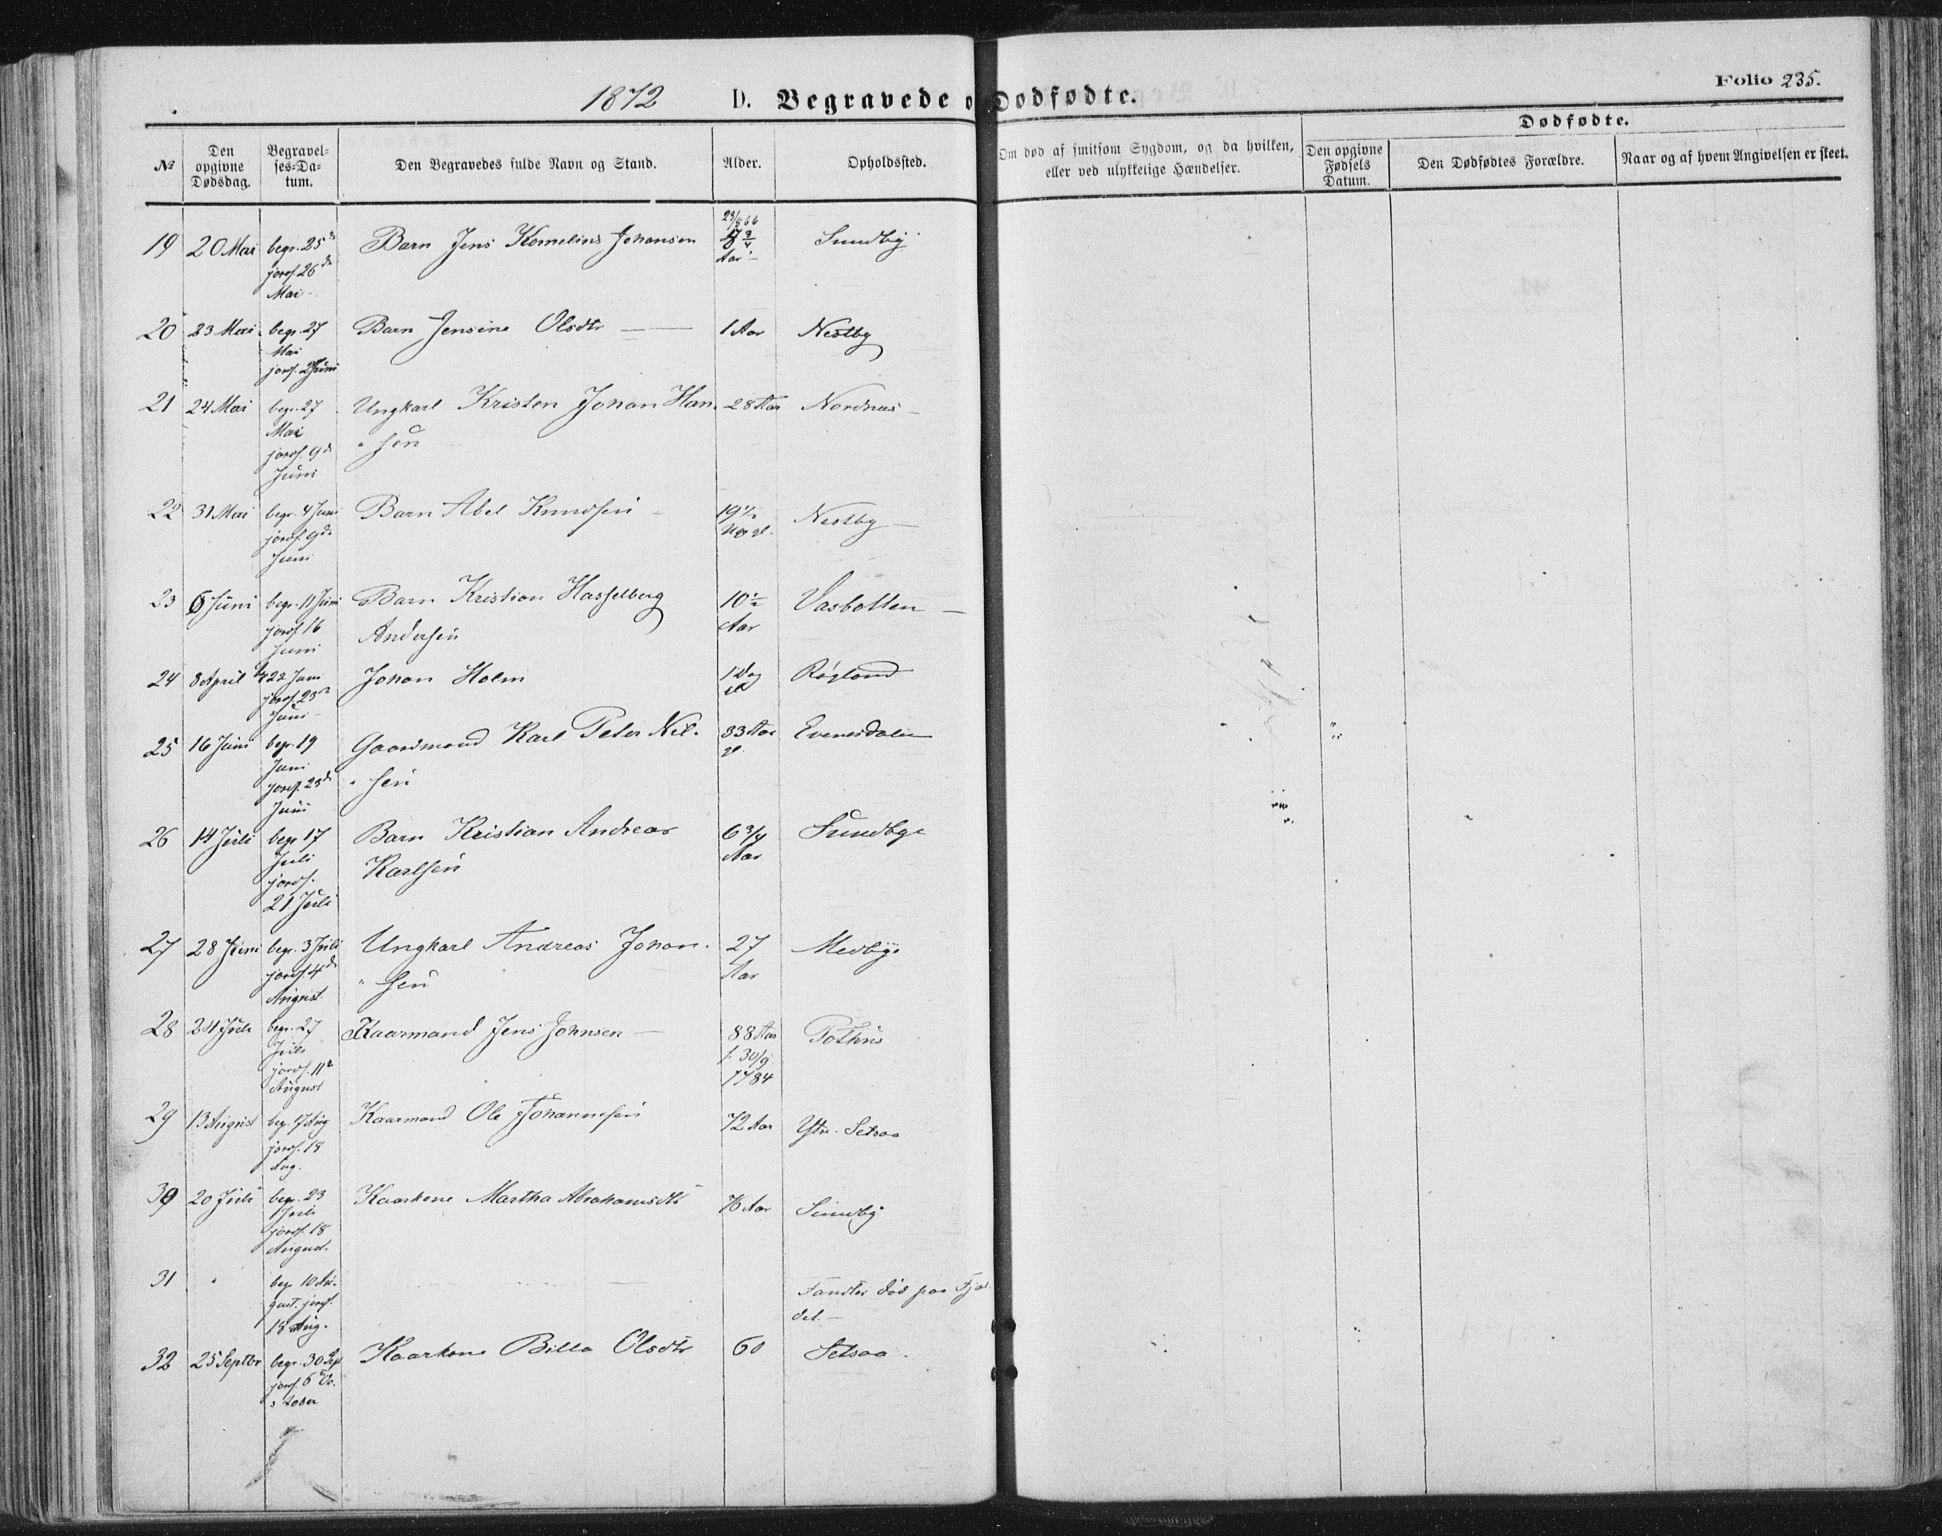 1872 D. Begravede o Dødfødte. Folio 235.
Dødfødte.
№ Den opgivne Dødsdag. Begravelses-Datum. Den Begravedes fulde Navn og Stand. Alder. Opholdssted. Om død af smitsom Sygdom, og da hvilken, eller ved ulykkelige Hændelser. Den opgivne Fødsels Datum. Den Dødfødtes Forældre. Naar og af hvem Angivelsen er skeet.
23/8 66
19 20 Mai begr. 25de Barn Jens Kornelius Johansen 5 3/4 Sundby
jordf. 26de Aar
Mai
20 23 Mai begr. 27 Barn Jensine Olsdtr 1 Aar Nestby
Mai
jordf. 2 Juni
21 24 Mai begr. 27 Ungkarl Kristen Johan Han- 28 Aar Nordnes
Mai sen
jordf. 9de
Juni
22 31 Mai begr. 4 Juni Barn Abel Knudsen 19 1/2 Nestby
jordf. 9de
Juni
23 6 Juni begr. 11 Juni Barn Kristian Hasselberg 10 1/2 Vasbotten
jordf. 16 Andersen Aar
Juni
24 8 April 22 Juni Johan Holm 1 Dag Røgland
jordf. 23de gl.
Juni
25 16 Juni begr. 19 Gaardmand Karl Peter Nil- 33 Aar Evenesdalen
Juni sen gl.
jordf. 23de
Juni
26 14 Juli begr. 17 Barn Kristian Andreas 6 3/4 Sundby
Juli Karlsen Aar
jordf.
21 Juli
27 28 Juni begr. 3 Juli Ungkarl Andreas Johan- 27 Medbye
jordf. 4de sen Aar
August
28 24 Juli begr. 27 Kaarmand Jens Johnsen 88 Aar Pothus
Juli f. 30/9
jordf. 11te 1784
August
29 13 August beg. 17 Aug Kaarmand Ole Johannesen 72 Aar Ytre Setsaa
jordf. 18
Aug.
30 20 Juli begr. 23 Kaarkone Martha Abrahamsdtr 76 Aar Sundby
Juli
jordf. 18
August.
31 " begr 10 Au- Fandtes død paa Fjel-
gust. jordf. det.
18 Aug.
32 25 Septbr begr. 30 Sept Kaarkone Billa Olsdtr 60 Setsaa
jordf. 6 Oc-
tober